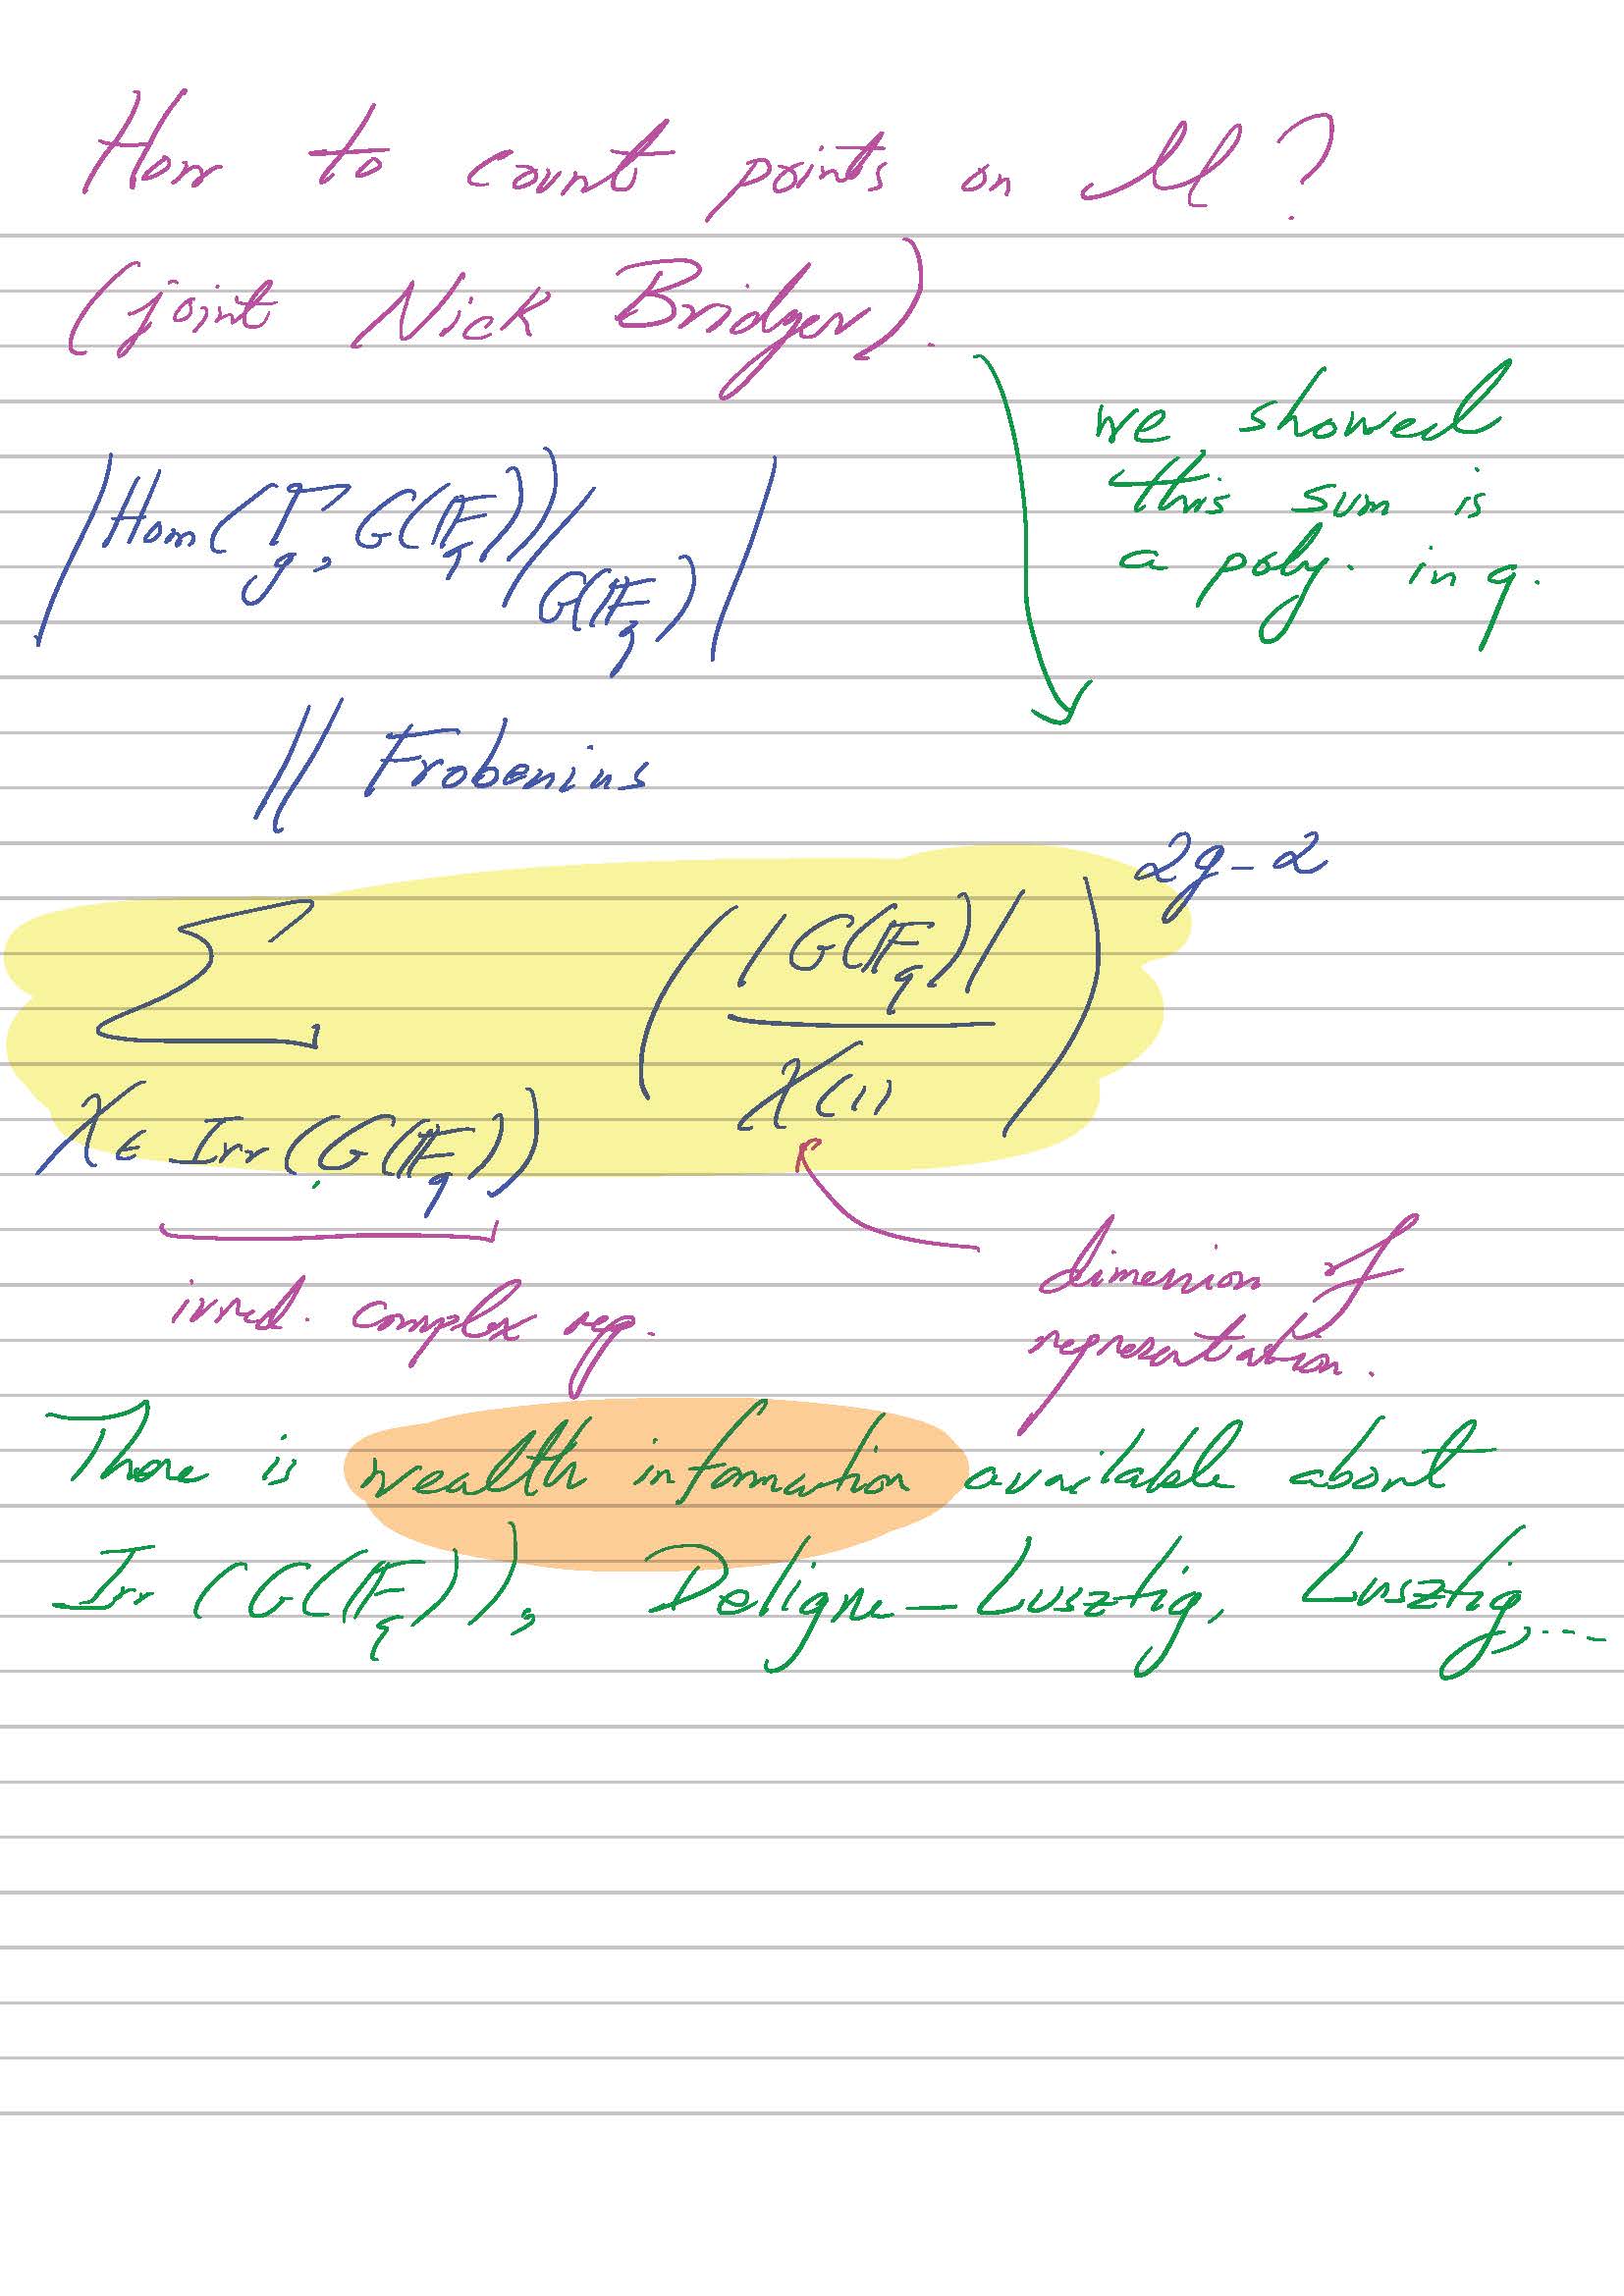 How to count points on M?
(joint Nick Bridger).
we showed
this sum is
a poly. in q.
|Hom(Γ_g, G(F_q))/G(F_q)|
|| Frobenius
∑_{χ ∈ Irr(G(F_q))} (|G(F_q)| / χ(1))^{2g-2}
irred. complex rep.
dimension of
representation.
There is wealth information available about
Irr(G(F_q)), Deligne-Lusztig, Lusztig,....